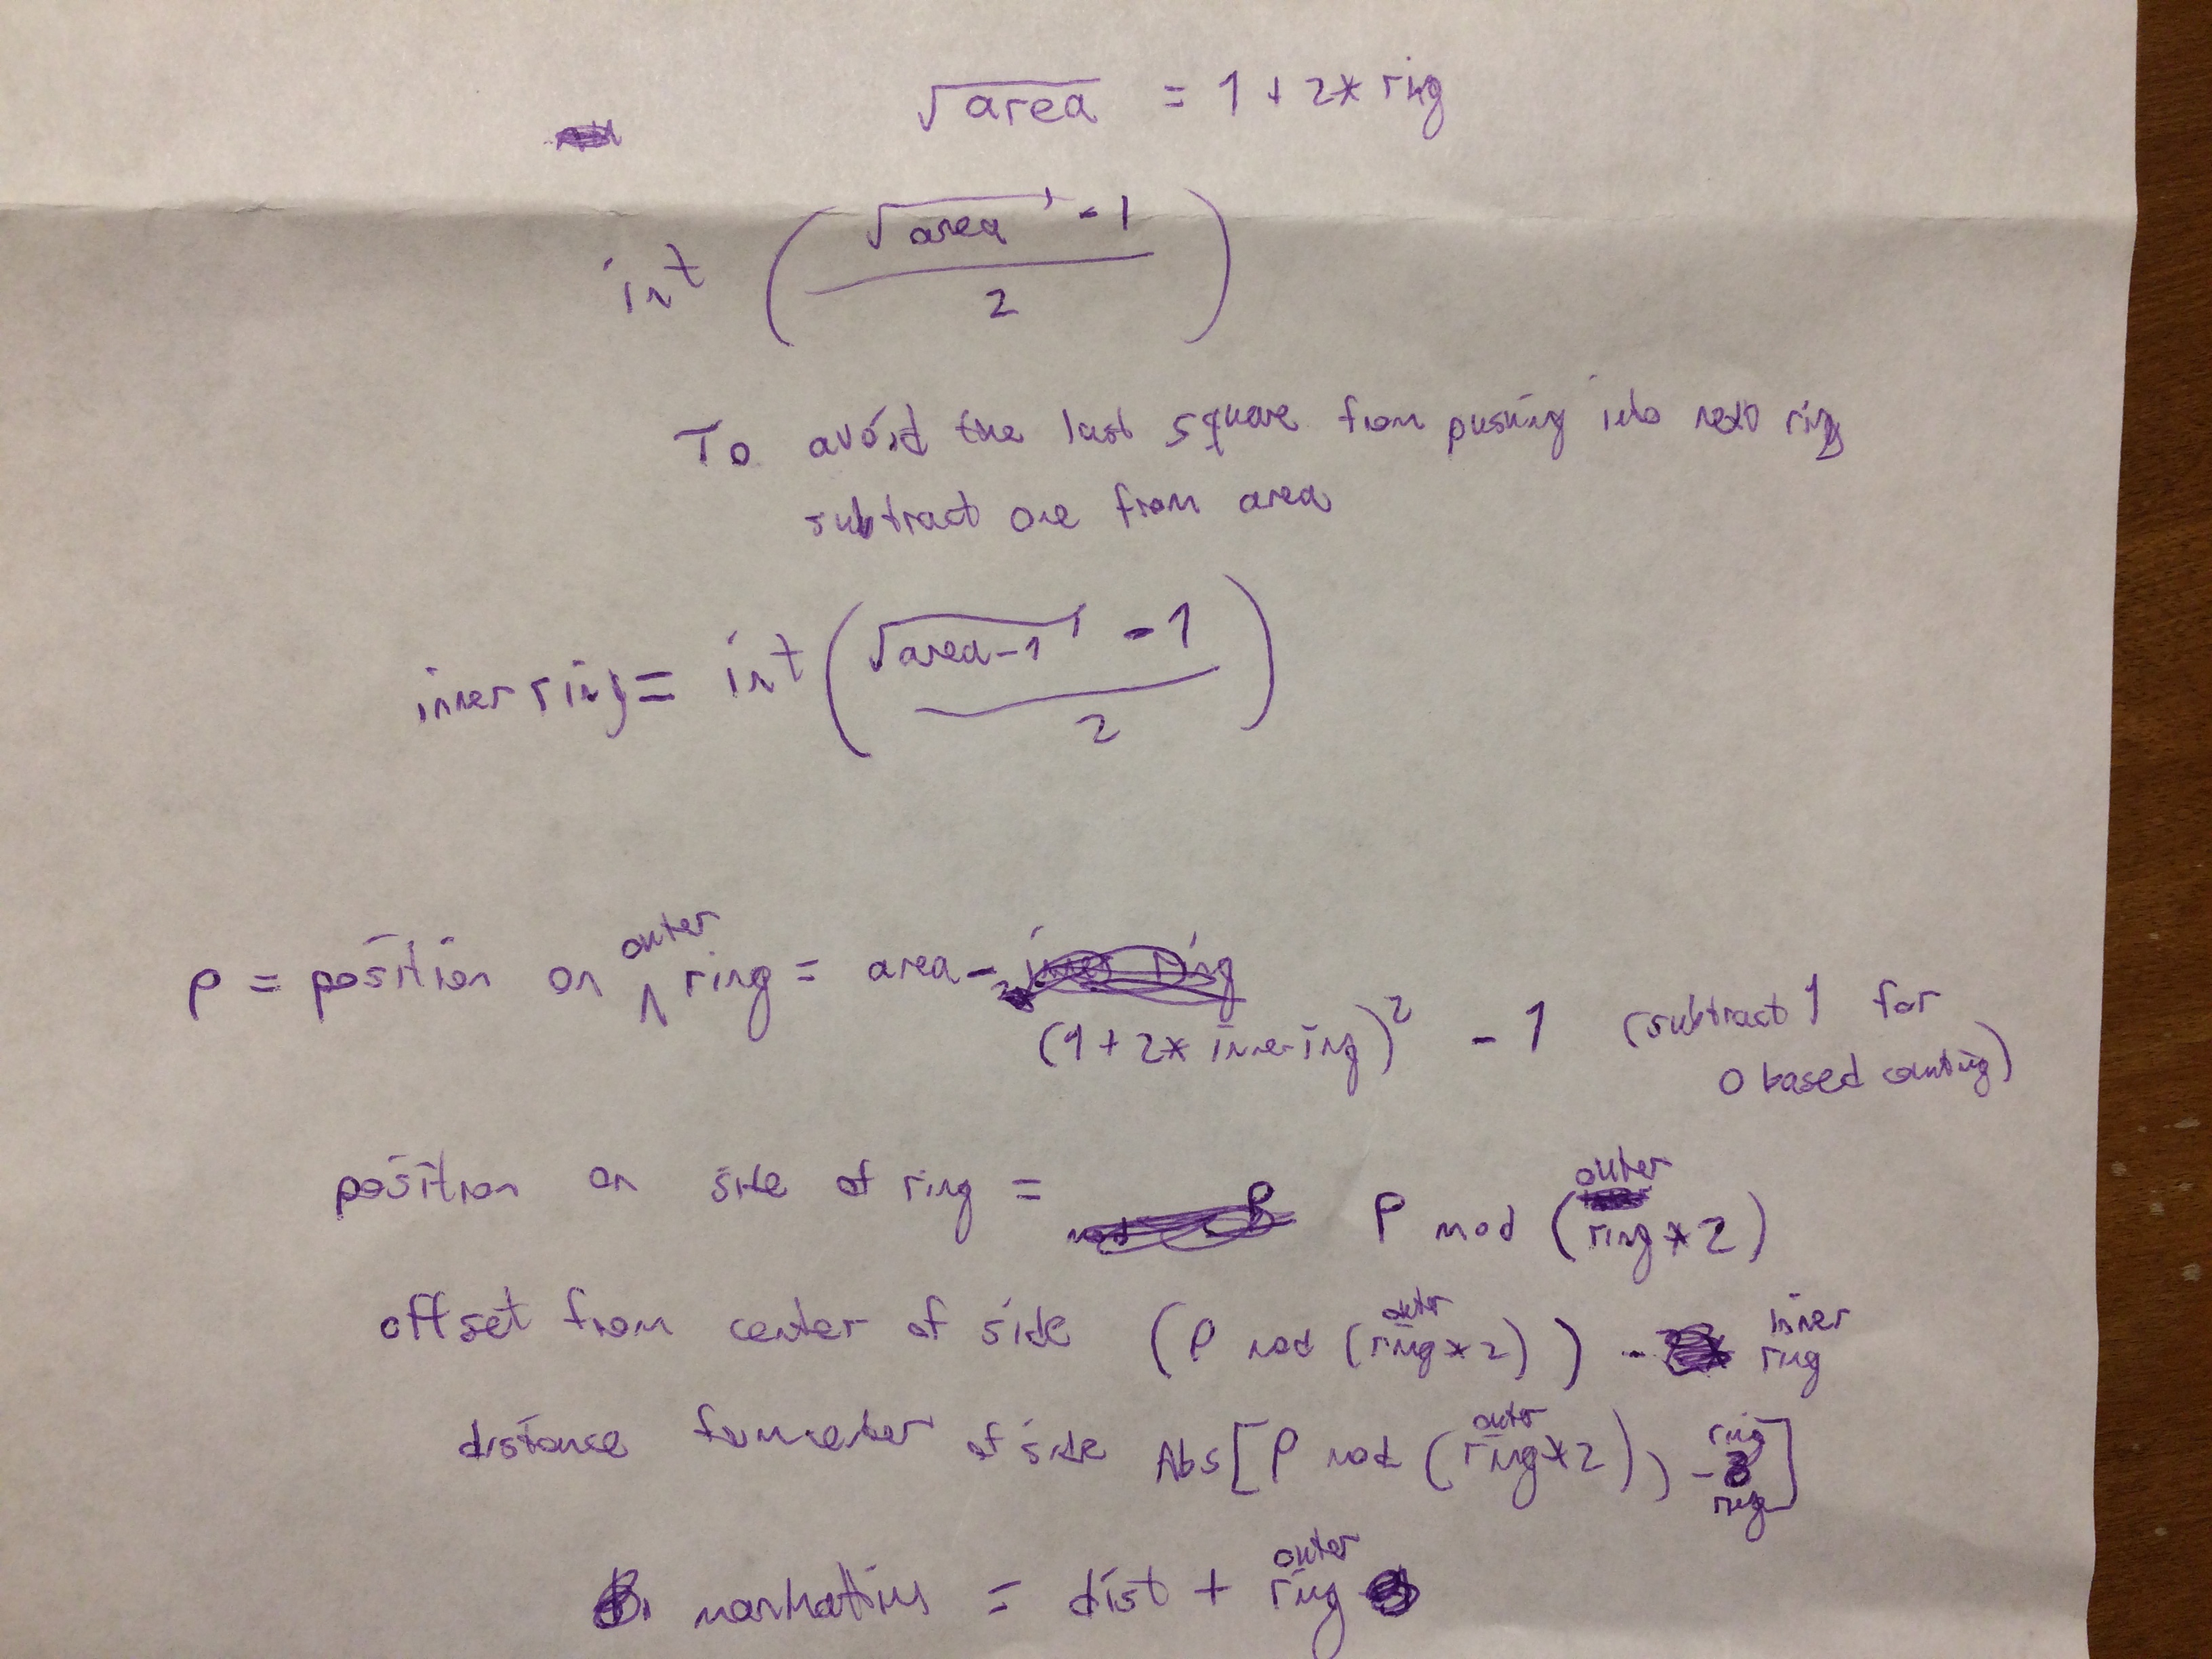 √area = 1 + 2* ring
int ( (√area - 1) / 2 )
To avoid the last square from pushing into next ring
subtract one from area
inner ring = int ( (√area-1 - 1) / 2 )
outer
p = position on ^ ring = area -
(1 + 2* inner ring)² - 1 (subtract 1 for
0 based counting)
position on side of ring = P mod (outer ring * 2)
offset from center of side (P mod (outer ring * 2)) - inner ring
distance from center of side Abs[P mod (outer ring * 2)) - ring]
= dist + outer ring